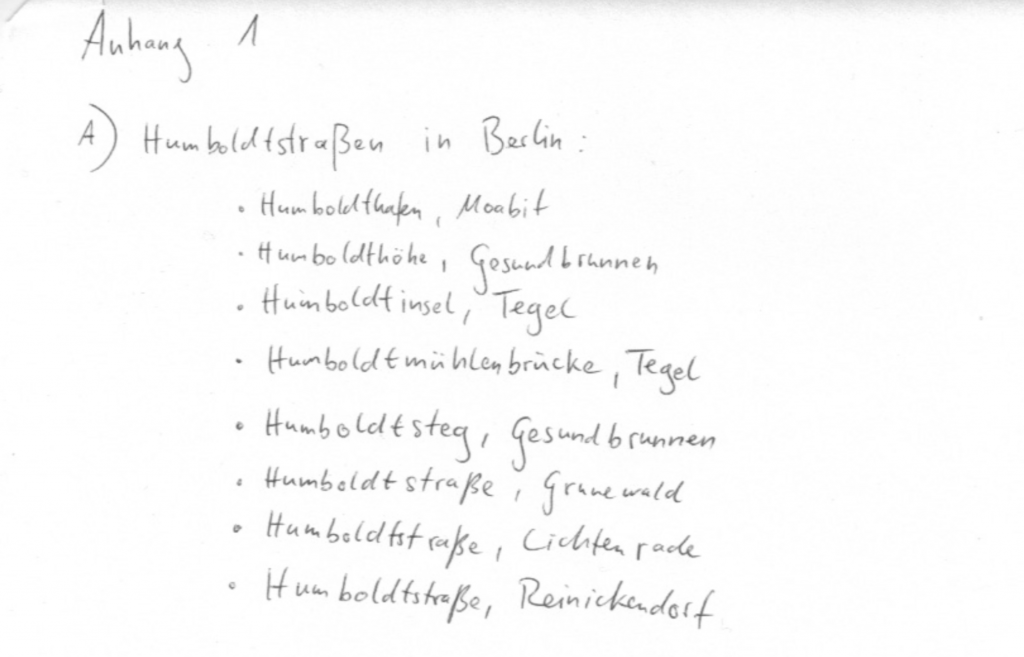 Anhang 1
A) Humboldtstraßen in Berlin:
• Humboldthafen, Moabit
• Humboldthöhe, Gesundbrunnen
• Humboldtinsel, Tegel
• Humboldtmühlenbrücke, Tegel
• Humboldtsteg, Gesundbrunnen
• Humboldtstraße, Grunewald
• Humboldtstraße, Lichtenrade
• Humboldtstraße, Reinickendorf